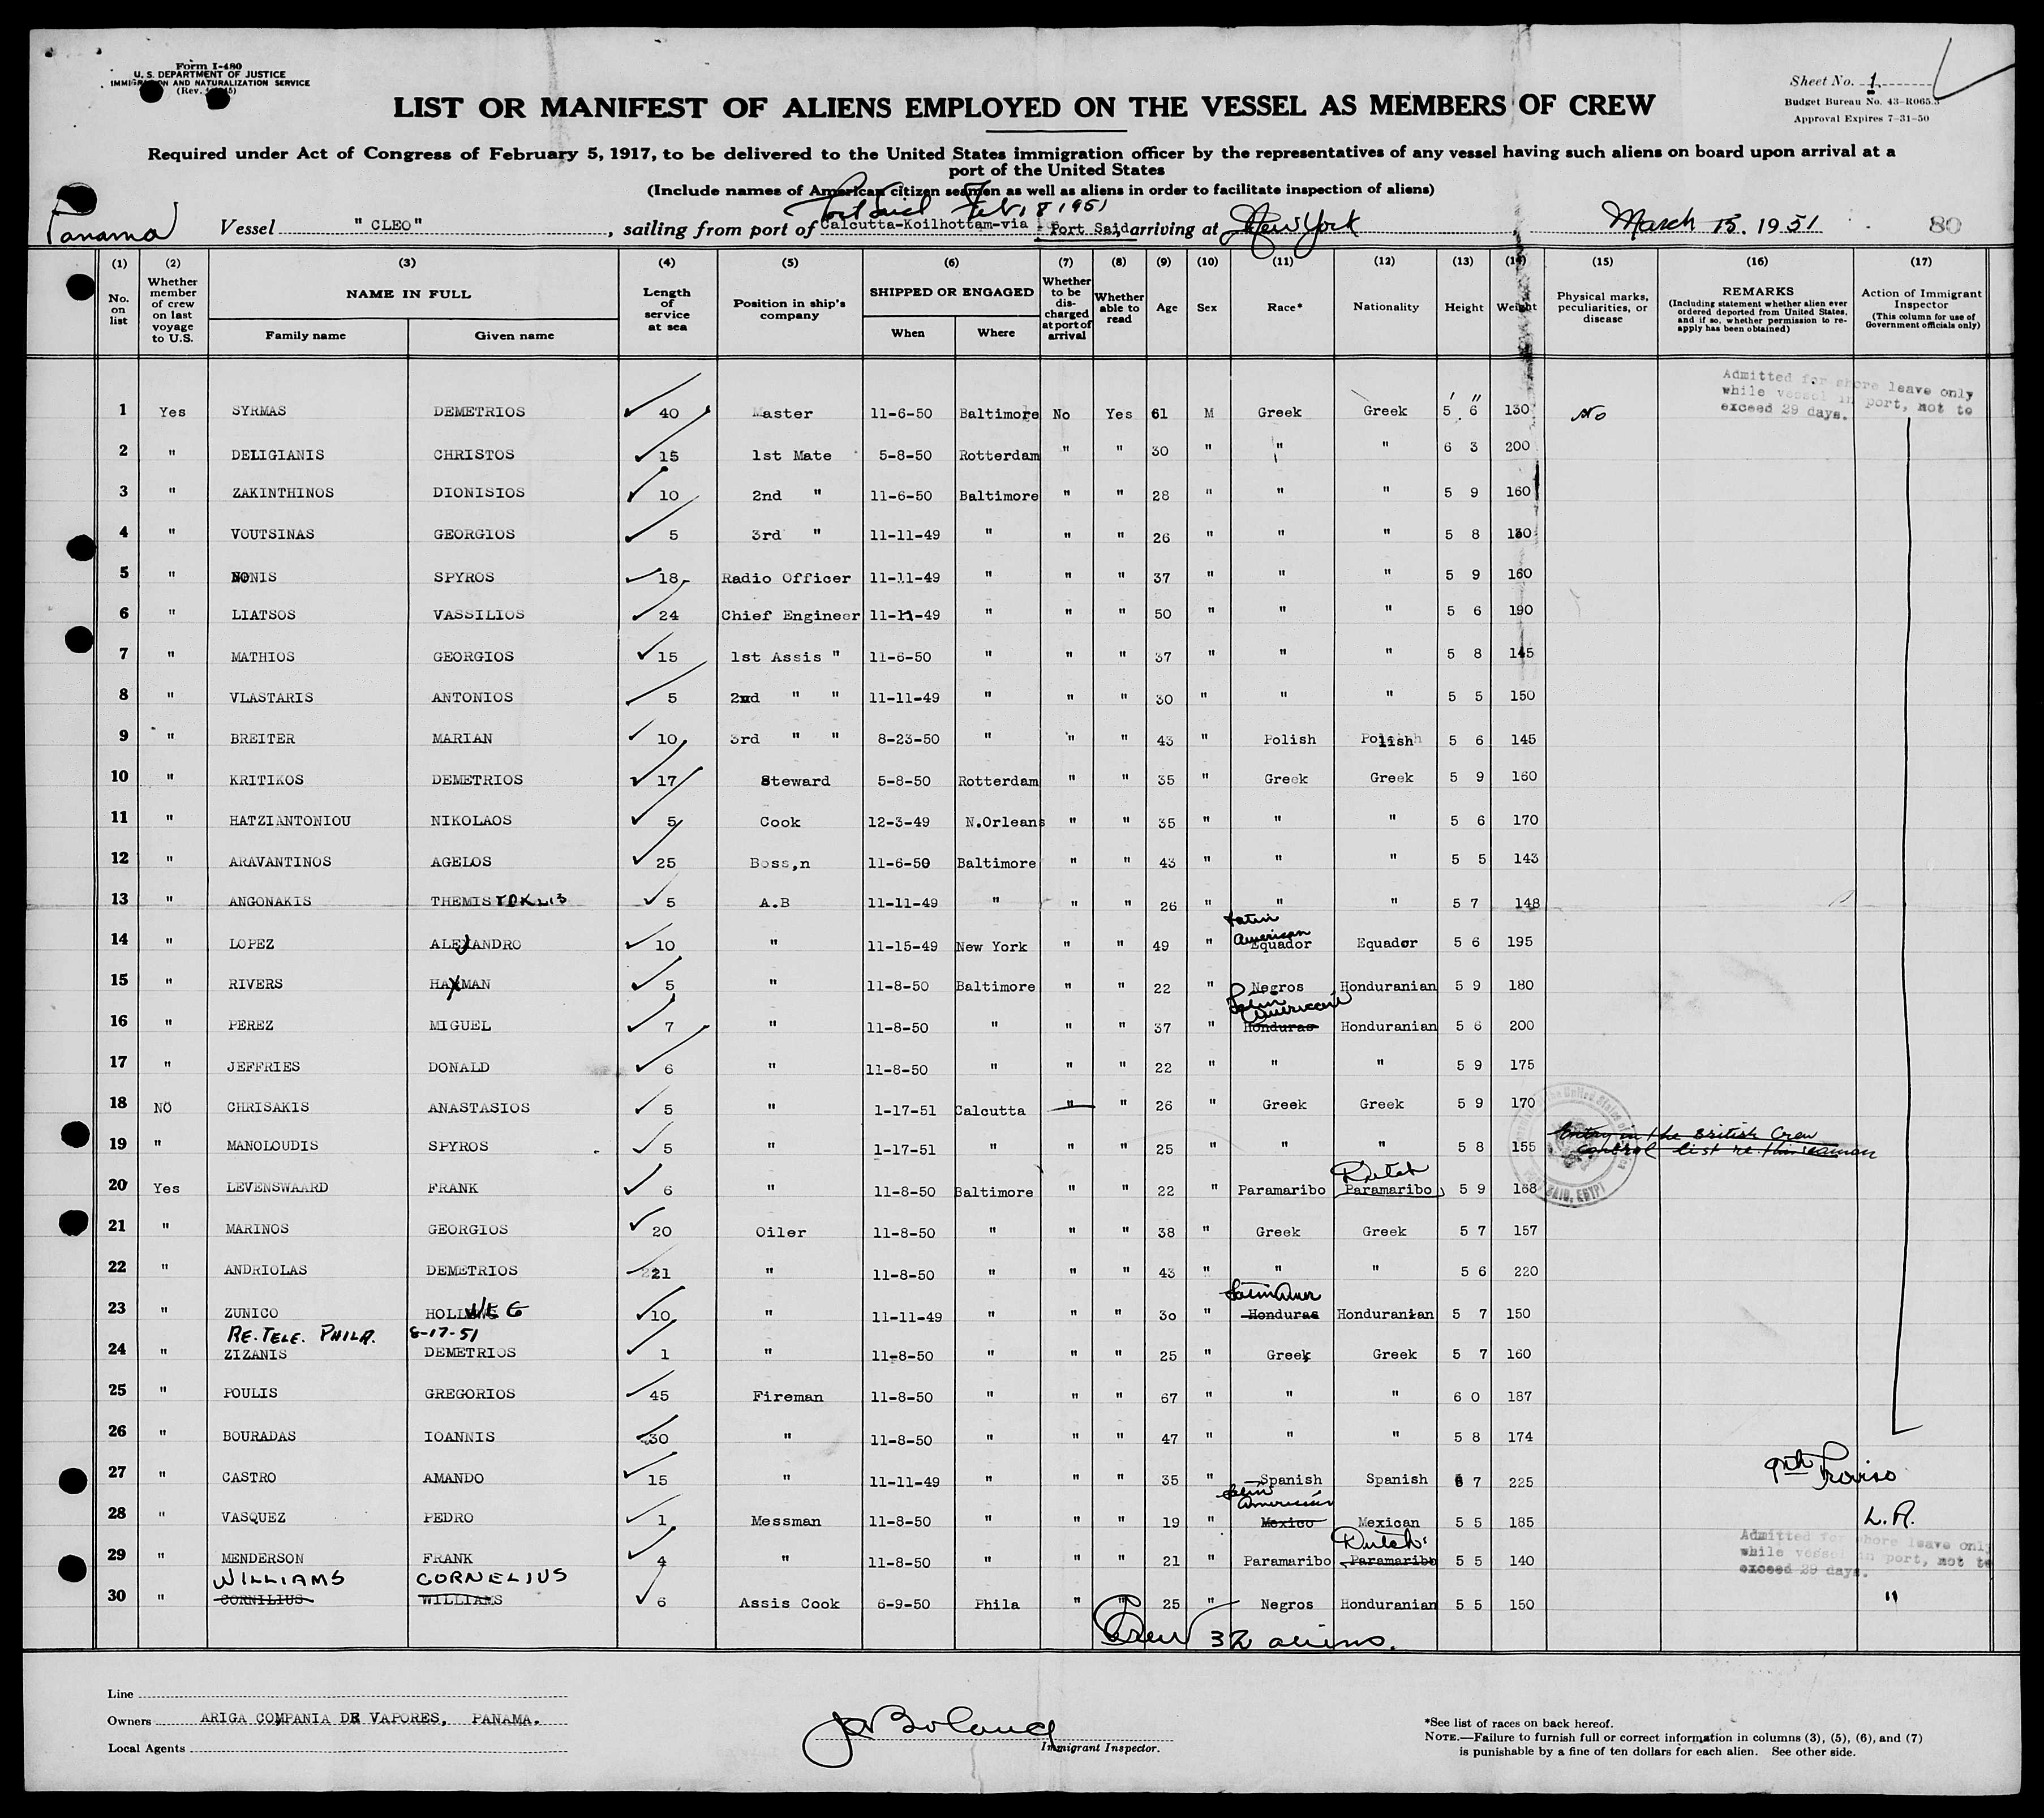 Form I-480
U. S. DEPARTMENT OF JUSTICE
IMMIGRATION AND NATURALIZATION SERVICE
(Rev.
Sheet No. 1
Budget Bureau No. 43-R065.3
Approval Expires 7-31-50
LIST OR MANIFEST OF ALIENS EMPLOYED ON THE VESSEL AS MEMBERS OF CREW
Required under Act of Congress of February 5, 1917, to be delivered to the United States immigration officer by the representatives of any vessel having such aliens on board upon arrival at a
port of the United States
(Include names of American citizen seamen as well as aliens in order to facilitate inspection of aliens)
Port Said Feb. 8 1951
Panama Vessel "CLEO", sailing from port of Calcutta-Koilhottam-via Port Said, arriving at New York March 15. 1951 80
(1) (2) (3) (4) (5) (6) (7) (8) (9) (10) (11) (12) (13) (14) (15) (16) (17)
No. on list Whether member of crew on last voyage to U.S. NAME IN FULL Family name Given name Length of service at sea Position in ship's company SHIPPED OR ENGAGED When Where Whether to be discharged at port of arrival Whether able to read Age Sex Race* Nationality Height Weight Physical marks, peculiarities, or disease REMARKS (Including statement whether alien ever ordered deported from United States, and if so, whether permission to reapply has been obtained) Action of Immigrant Inspector (This column for use of Government officials only)
Admitted for shore leave only
while vessel in port, not to
exceed 29 days.
1 Yes SYRMAS DEMETRIOS 40 Master 11-6-50 Baltimore No Yes 61 M Greek Greek 5' 6" 130 No
2 " DELIGIANIS CHRISTOS 15 1st Mate 5-8-50 Rotterdam " " 30 " " " 6 3 200
3 " ZAKINTHINOS DIONISIOS 10 2nd " 11-6-50 Baltimore " " 28 " " " 5 9 160
4 " VOUTSINAS GEORGIOS 5 3rd " 11-11-49 " " " 26 " " " 5 8 130
5 " NONIS SPYROS 18 Radio Officer 11-11-49 " " " 37 " " " 5 9 160
6 " LIATSOS VASSILIOS 24 Chief Engineer 11-11-49 " " " 50 " " " 5 6 190
7 " MATHIOS GEORGIOS 15 1st Assis " 11-6-50 " " " 37 " " " 5 8 145
8 " VLASTARIS ANTONIOS 5 2nd " " 11-11-49 " " " 30 " " " 5 5 150
9 " BREITER MARIAN 10 3rd " " 8-23-50 " " " 43 " Polish Polish 5 6 145
10 " KRITIKOS DEMETRIOS 17 Steward 5-8-50 Rotterdam " " 35 " Greek Greek 5 9 160
11 " HATZIANTONIOU NIKOLAOS 5 Cook 12-3-49 N.Orleans " " 35 " " " 5 6 170
12 " ARAVANTINOS AGELOS 25 Boss,n 11-6-50 Baltimore " " 43 " " " 5 5 143
13 " ANGONAKIS THEMISTOKLIS 5 A.B 11-11-49 " " " 26 " " " 5 7 148
Latin American
14 " LOPEZ ALEJANDRO 10 " 11-15-49 New York " " 49 " Equador Equador 5 6 195
15 " RIVERS HAYMAN 5 " 11-8-50 Baltimore " " 22 " Negros Honduranian 5 9 180
Latin American
16 " PEREZ MIGUEL 7 " 11-8-50 " " " 37 " Honduras Honduranian 5 6 200
17 " JEFFRIES DONALD 6 " 11-8-50 " " " 22 " " " 5 9 175
18 NO CHRISAKIS ANASTASIOS 5 " 1-17-51 Calcutta " " 26 " Greek Greek 5 9 170
19 " MANOLOUDIS SPYROS 5 " 1-17-51 " " " 25 " " " 5 8 155 Entry in the British Crew
control list re. this seaman
Dutch
20 Yes LEVENSWAARD FRANK 6 " 11-8-50 Baltimore " " 22 " Paramaribo Paramaribo 5 9 168
SAID, EGYPT
21 " MARINOS GEORGIOS 20 Oiler 11-8-50 " " " 38 " Greek Greek 5 7 157
22 " ANDRIOLAS DEMETRIOS 21 " 11-8-50 " " " 43 " " " 5 6 220
Latin Amer
23 " ZUNICO 10 " 11-11-49 " " " 30 " Honduras Honduranian 5 7 150
RE. TELE. PHILA. 8-17-51
24 " ZIZANIS DEMETRIOS 1 " 11-8-50 " " " 25 " Greek Greek 5 7 160
25 " POULIS GREGORIOS 45 Fireman 11-8-50 " " " 67 " " " 6 0 187
26 " BOURADAS IOANNIS 30 " 11-8-50 " " " 47 " " " 5 8 174
27 " CASTRO AMANDO 15 " 11-11-49 " " " 35 " Spanish Spanish 6 7 225 9th Proviso
Latin American
28 " VASQUEZ PEDRO 1 Messman 11-8-50 " " " 19 " Mexico Mexican 5 5 185 L.R.
Dutch
29 " MENDERSON FRANK 4 " 11-8-50 " " " 21 " Paramaribo Paramaribo 5 5 140
Admitted for shore leave only
while vessel in port, not to
exceed 29 days.
WILLIAMS CORNELIUS
30 " CORNILIUS WILLIAMS 6 Assis Cook 6-9-50 Phila " " 25 " Negros Honduranian 5 5 150 "
Crew 32 aliens.
Line
Owners ARIGA COMPANIA DE VAPORES, PANAMA.
Local Agents
Boland
Immigrant Inspector.
*See list of races on back hereof.
NOTE.—Failure to furnish full or correct information in columns (3), (5), (6), and (7)
is punishable by a fine of ten dollars for each alien. See other side.